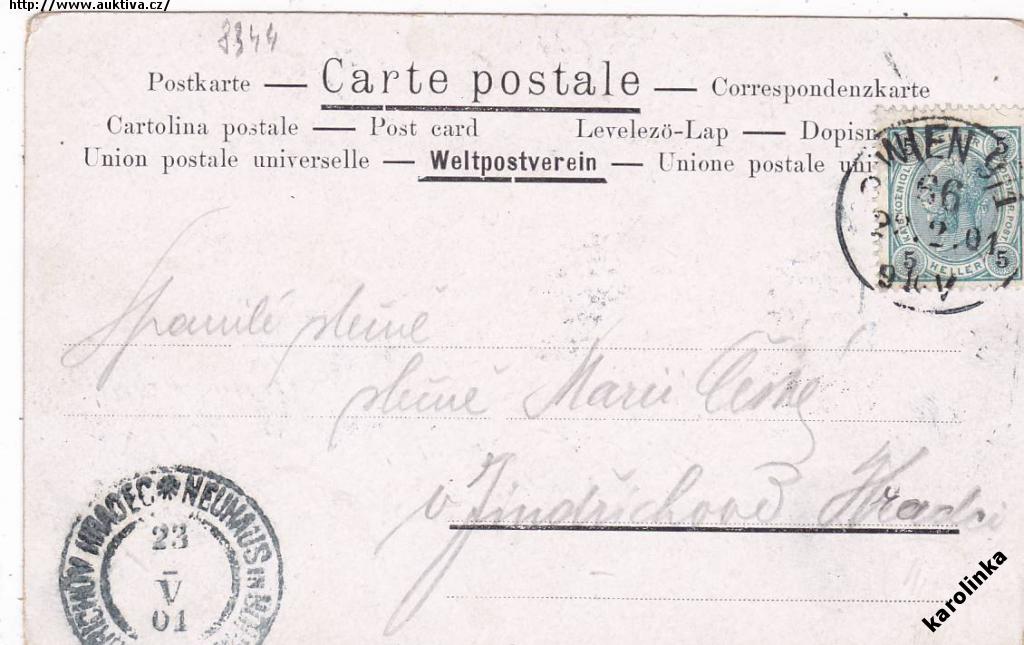 http://www.auktiva.cz/
8344
Postkarte — Carte postale — Correspondenzkarte
Cartolina postale — Post card Levelezö-Lap — Dopisn
Union postale universelle — Weltpostverein — Unione postale uni
WIEN
66
2.01
9 V
5 5
KAIS.KOENIGL. POST.
5 HELLER 5
Spanilé slečně
slečně Marii České
v Jindřichově Hradci
JINDŘICHŮV HRADEC * NEUHAUS IN
23
V
01
karolinka